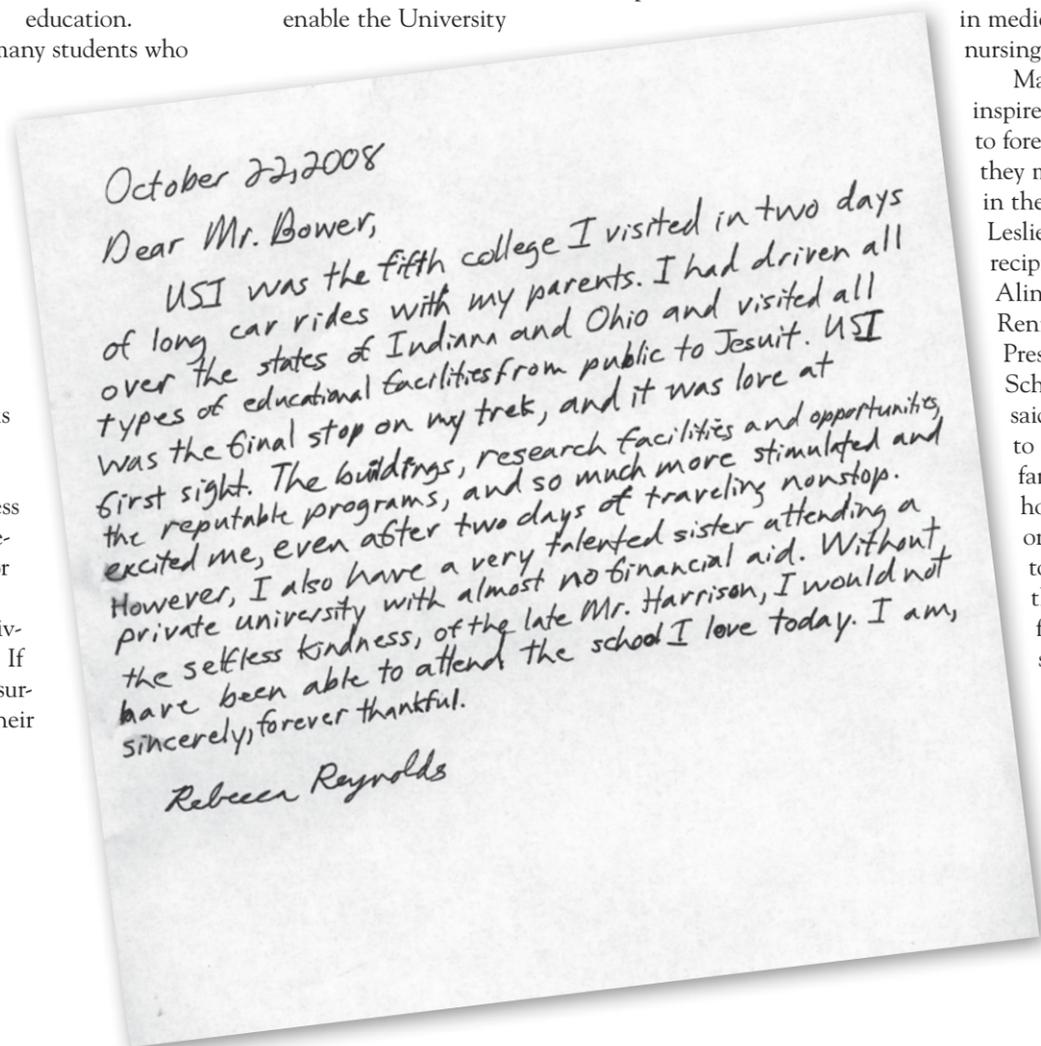 education.
many students who
enable the University
October 22, 2008
Dear Mr. Bower,
USI was the fifth college I visited in two days
of long car rides with my parents. I had driven all
over the states of Indiana and Ohio and visited all
types of educational facilities from public to Jesuit. USI
was the final stop on my trek, and it was love at
first sight. The buildings, research facilities and opportunities,
the reputable programs, and so much more stimulated and
excited me, even after two days of traveling nonstop.
However, I also have a very talented sister attending a
private university with almost no financial aid. Without
the selfless kindness, of the late Mr. Harrison, I would not
have been able to attend the school I love today. I am,
sincerely, forever thankful.
Rebecca Reynolds
If
in
nursing
inspire
to
they
in the
Leslie
said
to